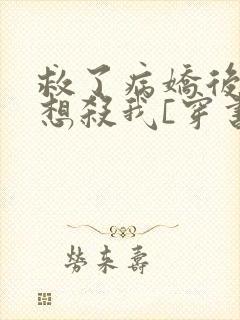 救了病嬌後
想殺我[穿書
勞來壽